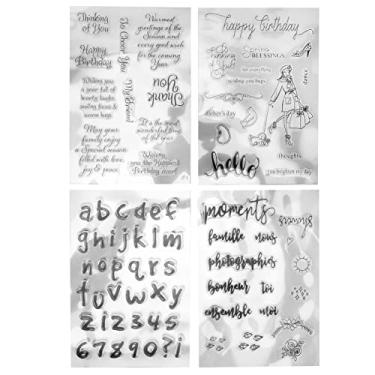 Thinking
of You
Happy
Birthday
To Cheer You
Warmest
greetings of the
Season and
every good wish
for the coming
Year
Thank
You
My Friend
Wishing you
a year full of
hearty laughs
May your
family enjoy
a Special season
filled with love,
joy & peace
It's the most
wonderful time
of the year
Wishing
you the Happiest
Birthday ever!
happy birthday
BLESSINGS
for everything
sending you hugs
dance
mother's day
hello
thoughts
you brighten my day
a b c d e f
g h i j k l m
n o p q r s
t u v w x y
z 1 2 3 4 5
6 7 8 9 0 ? i
moments
famille nous
photographies
bonheur toi
ensemble moi